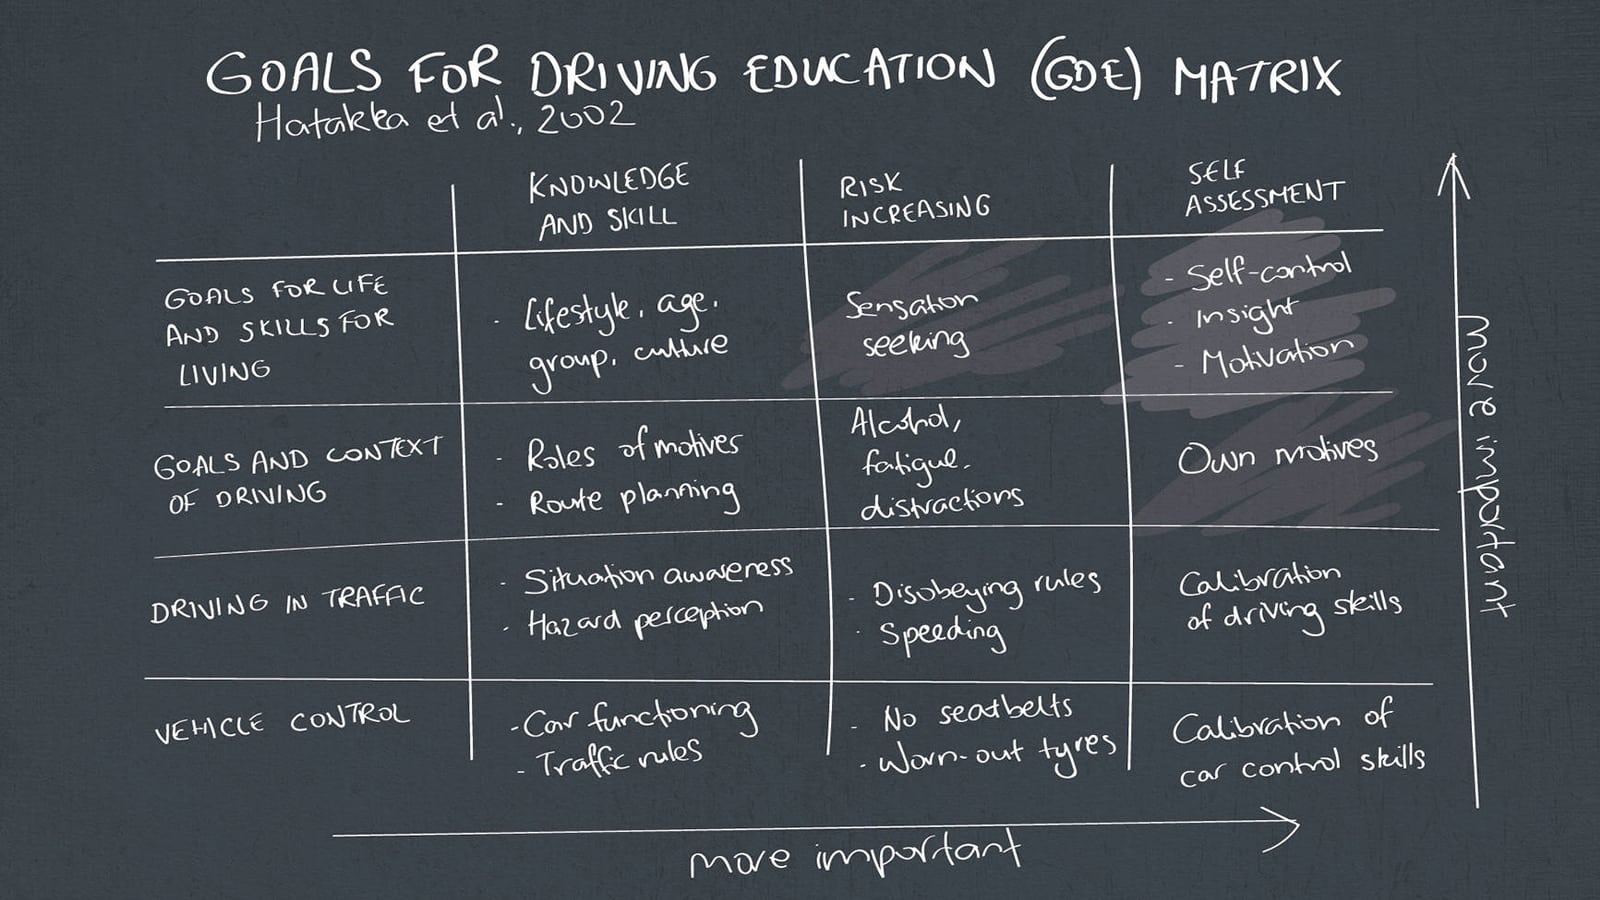 GOALS FOR DRIVING EDUCATION (GDE) MATRIX
Hatakka et al., 2002
KNOWLEDGE
AND SKILL
RISK
INCREASING
SELF
ASSESSMENT
GOALS FOR LIFE
AND SKILLS FOR
LIVING
· Lifestyle, age,
group, culture
Sensation
seeking
- Self-control
· Insight
- Motivation
GOALS AND CONTEXT
OF DRIVING
- Roles of motives
- Route planning
Alcohol,
fatigue,
distractions
Own motives
DRIVING IN TRAFFIC
· Situation awareness
· Hazard perception
· Disobeying rules
· Speeding
Calibration
of driving skills
VEHICLE CONTROL
- Car functioning
- Traffic rules
· No seatbelts
· Worn-out tyres
Calibration of
car control skills
more important
more important